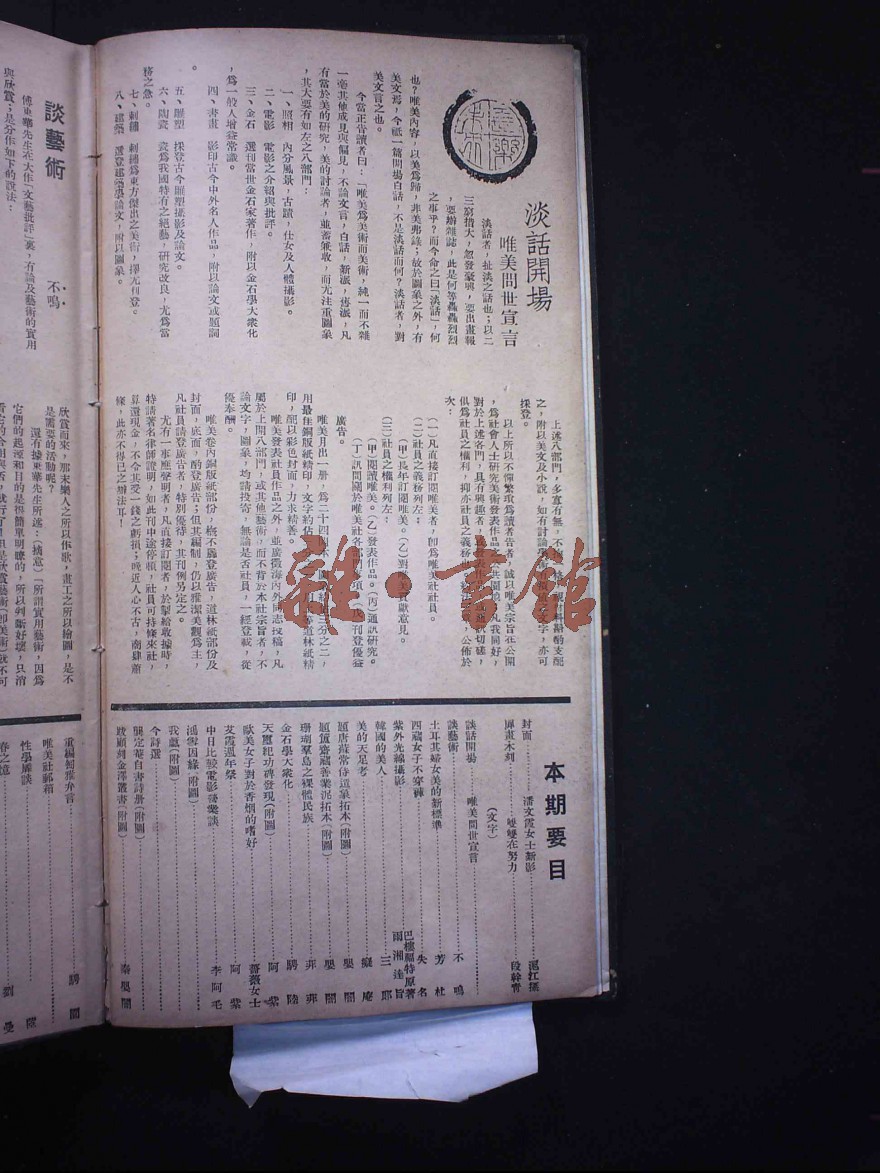 淡話開場
唯美問世宣言
淡話者,扯淡之話也;以二
三窮措大,忽發豪興,要出畫報
,要辦雜誌,此是何等轟轟烈烈
之事乎?而今命之曰「淡話」,何
也?唯美內容,以美爲歸,非美弗錄;故於圖象之外,有
美文焉,今祗一篇開場白話,不是淡話而何?淡話者,對
美文言之也。
今當正告讀者曰:「唯美爲美術而美術,純一而不雜
一毫其他成見與偏見,不論文言,白話,新派,舊派,凡
有當於美的研究,美的討論者,並蓄兼收,而尤注重圖象
,其大要有如左之八部門:
一、照相 內分風景,古蹟,仕女及人體攝影。
二、電影 電影之介紹與批評。
三、金石 選刊當世金石家著作,附以金石學大衆化
,爲一般人增益常識。
四、書畫 影印古今中外名人作品,附以論文或題詞
。
五、雕塑 採登古今雕塑攝影及論文。
六、陶瓷 瓷爲我國特有之絕藝,研究改良,尤爲當
務之急。
七、刺繡 刺繡爲東方傑出之美術,擇尤刊登。
八、建築 選登建築學論文,附以圖象。
上述八部門,多寡有無,不
之,附以美文及小說,如有討論學術
文字,亦可
採登。
以上所以不憚繁瑣爲讀者告者,誠以唯美宗旨在公開
,爲社會人士研究美術發表作品
凡我同好,
對於上述各門,具有興趣者,
俱爲社員之權利,抑亦社員之義務
公佈於
次:
(一)凡直接訂閱唯美者,卽爲唯美社社員。
(二)社員之義務列左:
(甲)長年訂閱唯美。(乙)對唯美貢獻意見。
(三)社員之權利列左:
(甲)閱讀唯美。(乙)發表作品。(丙)通訊研究。
(丁)訊問關於唯美社各部門事項。(戊)刊登優益
廣告。
唯美月出一册,爲二十四開本,圖
三分之二,
用最佳銅版紙精印,文字約佔
道林紙精
印,配以彩色封面,力求精善。
唯美發表社員作品之外,並廣徵海內外同志投稿,凡
屬於上開八部門,或其他藝術,而不背於本社宗旨者,不
論文字,圖象,均請投寄,無論是否社員,一經登載,從
優奉酬。
唯美卷內銅版紙部份,槪不羼登廣告,道林紙部份及
封面,底面,酌登廣告;但其編制,仍以雅潔美觀爲主,
凡社員請登廣告者,特別優待,其刊例另定之。
尤有一事應聲明者,凡直接訂閱者,於掣給收據時,
特請著名律師證明,如此刊中途停頓,社員可持條來社,
算還現金,不令其受一錢之虧損;晚近人心不古,南肆蕭
條,此亦不得已之辦法耳!
本期要目
封面 潘文霞女士新影 滬江攝
屏畫木刻 雙雙在努力 段幹青
(文字)
談話開場 唯美問世宣言
談藝術 不鳴
土耳其婦女美的新標準 芳杜
西藏女子不穿褲 失名
紫外光線攝影 巴樓福特原著 雨湘達旨
韓國的美人 三郎
美的天足考 癡庵
題唐蘇常侍造象拓本(附圖) 嬰闇
題匋齋藏善業泥拓本(附圖) 嬰闇
珊瑚羣島之裸體民族 菲菲
金石學大衆化 騁陸
天璽紀功碑發現(附圖) 阿紫
歐美女子對於香烟的嗜好 薔薇女士
艾霞週年祭 阿紫
中日比較電影藝術談 李阿毛
鴻雪因緣(附圖)
我戲(附圖)
今詩選
龔定菴自書詩册(附圖)
跋顧刻金澤叢書(附圖) 秦嬰闇
談藝術
不鳴
傅東華先生在大作「文藝批評」裏,有論及藝術的實用
與欣賞;是分作如下的說法:
欣賞而來,那末樂人之所以作歌,畫工之所以繪圖,是不
是需要的活動呢?
還有據東華先生所述:(摘意)「所謂實用藝術,因爲
它們的起源和目的是很簡單明瞭的,所以判斷好壞,只消
唯美社郵箱
性學臆談
春之憶
雜·書館